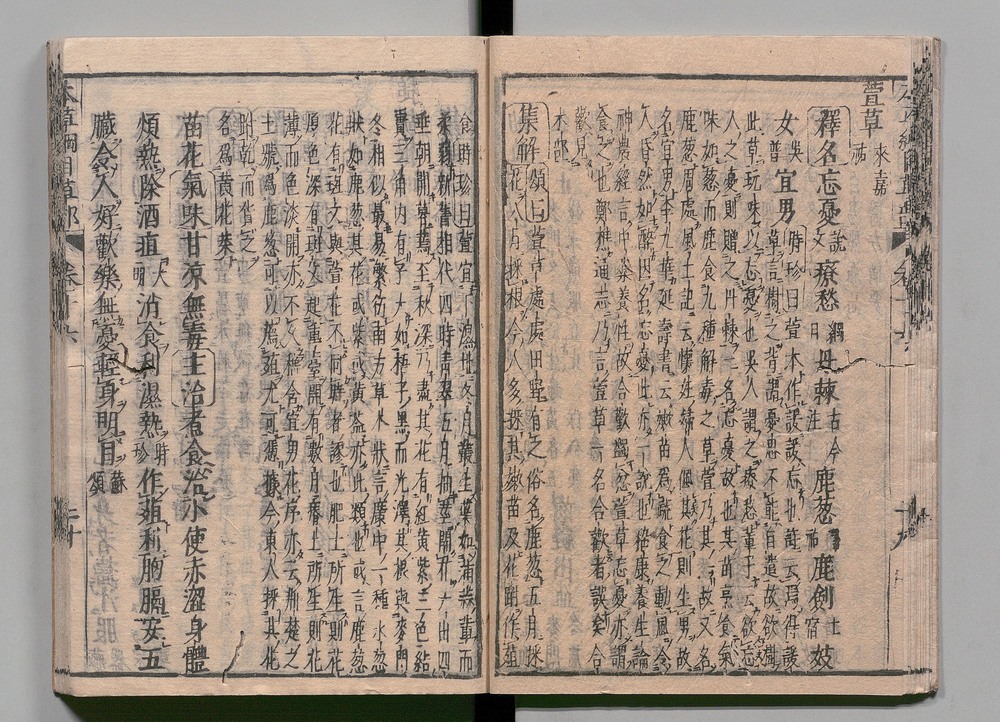 萱草 宋嘉祐
釋名忘憂說文療愁綱目丹棘古今注鹿葱嘉祐鹿劍土宿妓
女吳普宜男時珍曰萱本作諼諼忘也詩云焉得諼
草言樹之背謂憂思不能自遣故欲樹
此草玩味以忘憂也吳人謂之療愁董子云欲忘
人之憂則贈之丹棘一名忘憂故也其苗烹食氣
味如葱而鹿食九種解毒之草萱乃其一故又名
鹿葱周處風土記云懷妊婦人佩其花則生男故
名宜男李九華延壽書云嫩苗爲蔬食之動風令
人昏然如醉因名忘憂此亦一說也嵇康養生論
神農經言中藥養性故合歡蠲忿萱草忘憂亦謂
食之也鄭樵通志乃言萱草一名合歡者誤矣合
歡見
木部
集解頌曰萱草處處田野有之俗名鹿葱五月採
花八月採根今人多採其嫩苗及花跗作葅
食時珍曰萱宜下濕地冬月叢生葉如蒲蒜輩而
柔弱新舊相代四時青翠五月抽莖開花六出四
垂朝開暮蔫至秋深乃盡其花有紅黃紫三色結
實三角內有子大如梧子黑而光澤其根與麥門
冬相似最易繁衍南方草木狀言廣中一種水葱
狀如鹿葱其花或紫或黃蓋亦此類也或言鹿葱
花有斑文與萱花不同時者謬也肥土所生則花
厚色深有斑文起重臺開有數月瘠土所生則花
薄而色淡開亦不久嵇含宜男花序亦云荊楚之
土號爲鹿葱可以薦菹尤可憑據今東人採其花
跗乾而貨之
名爲黃花菜
苗花氣味甘凉無毒主治煮食治小便赤澀身體
煩熱除酒疸大明消食利濕熱時珍作葅利胸膈安五
臟令人好歡樂無憂輕身明目蘇頌